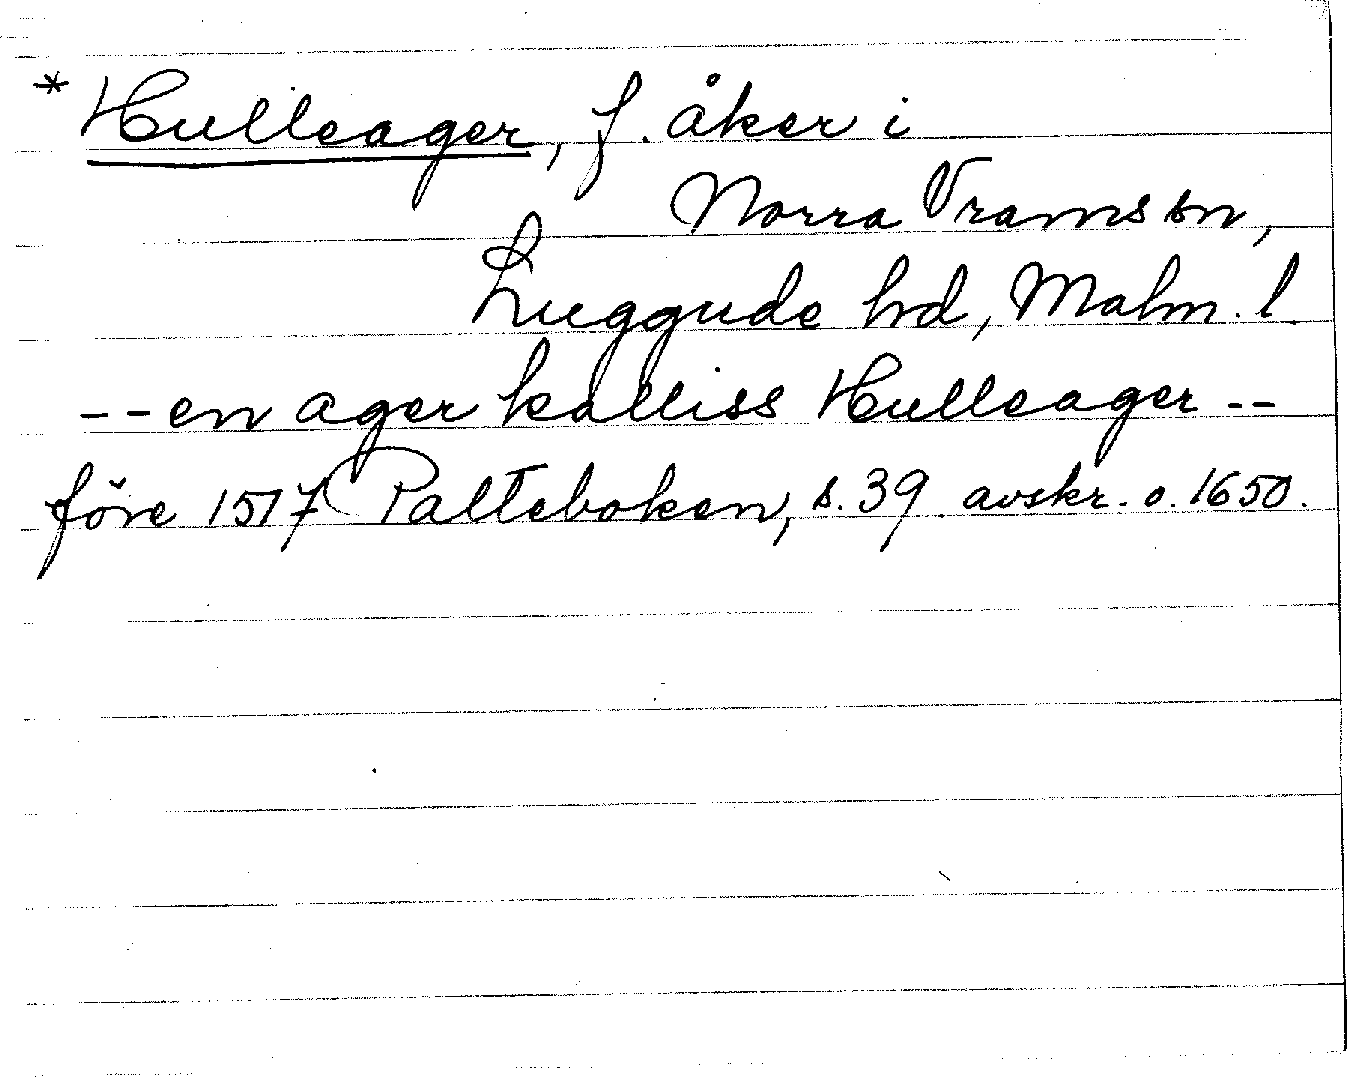 * Hulleager, f. åker i
Norra Vrams sn,
Luggude hd, Malm. l.
-- en ager kalliss Hulleager --
före 1517 Palteboken, s. 39. avskr. o. 1650.